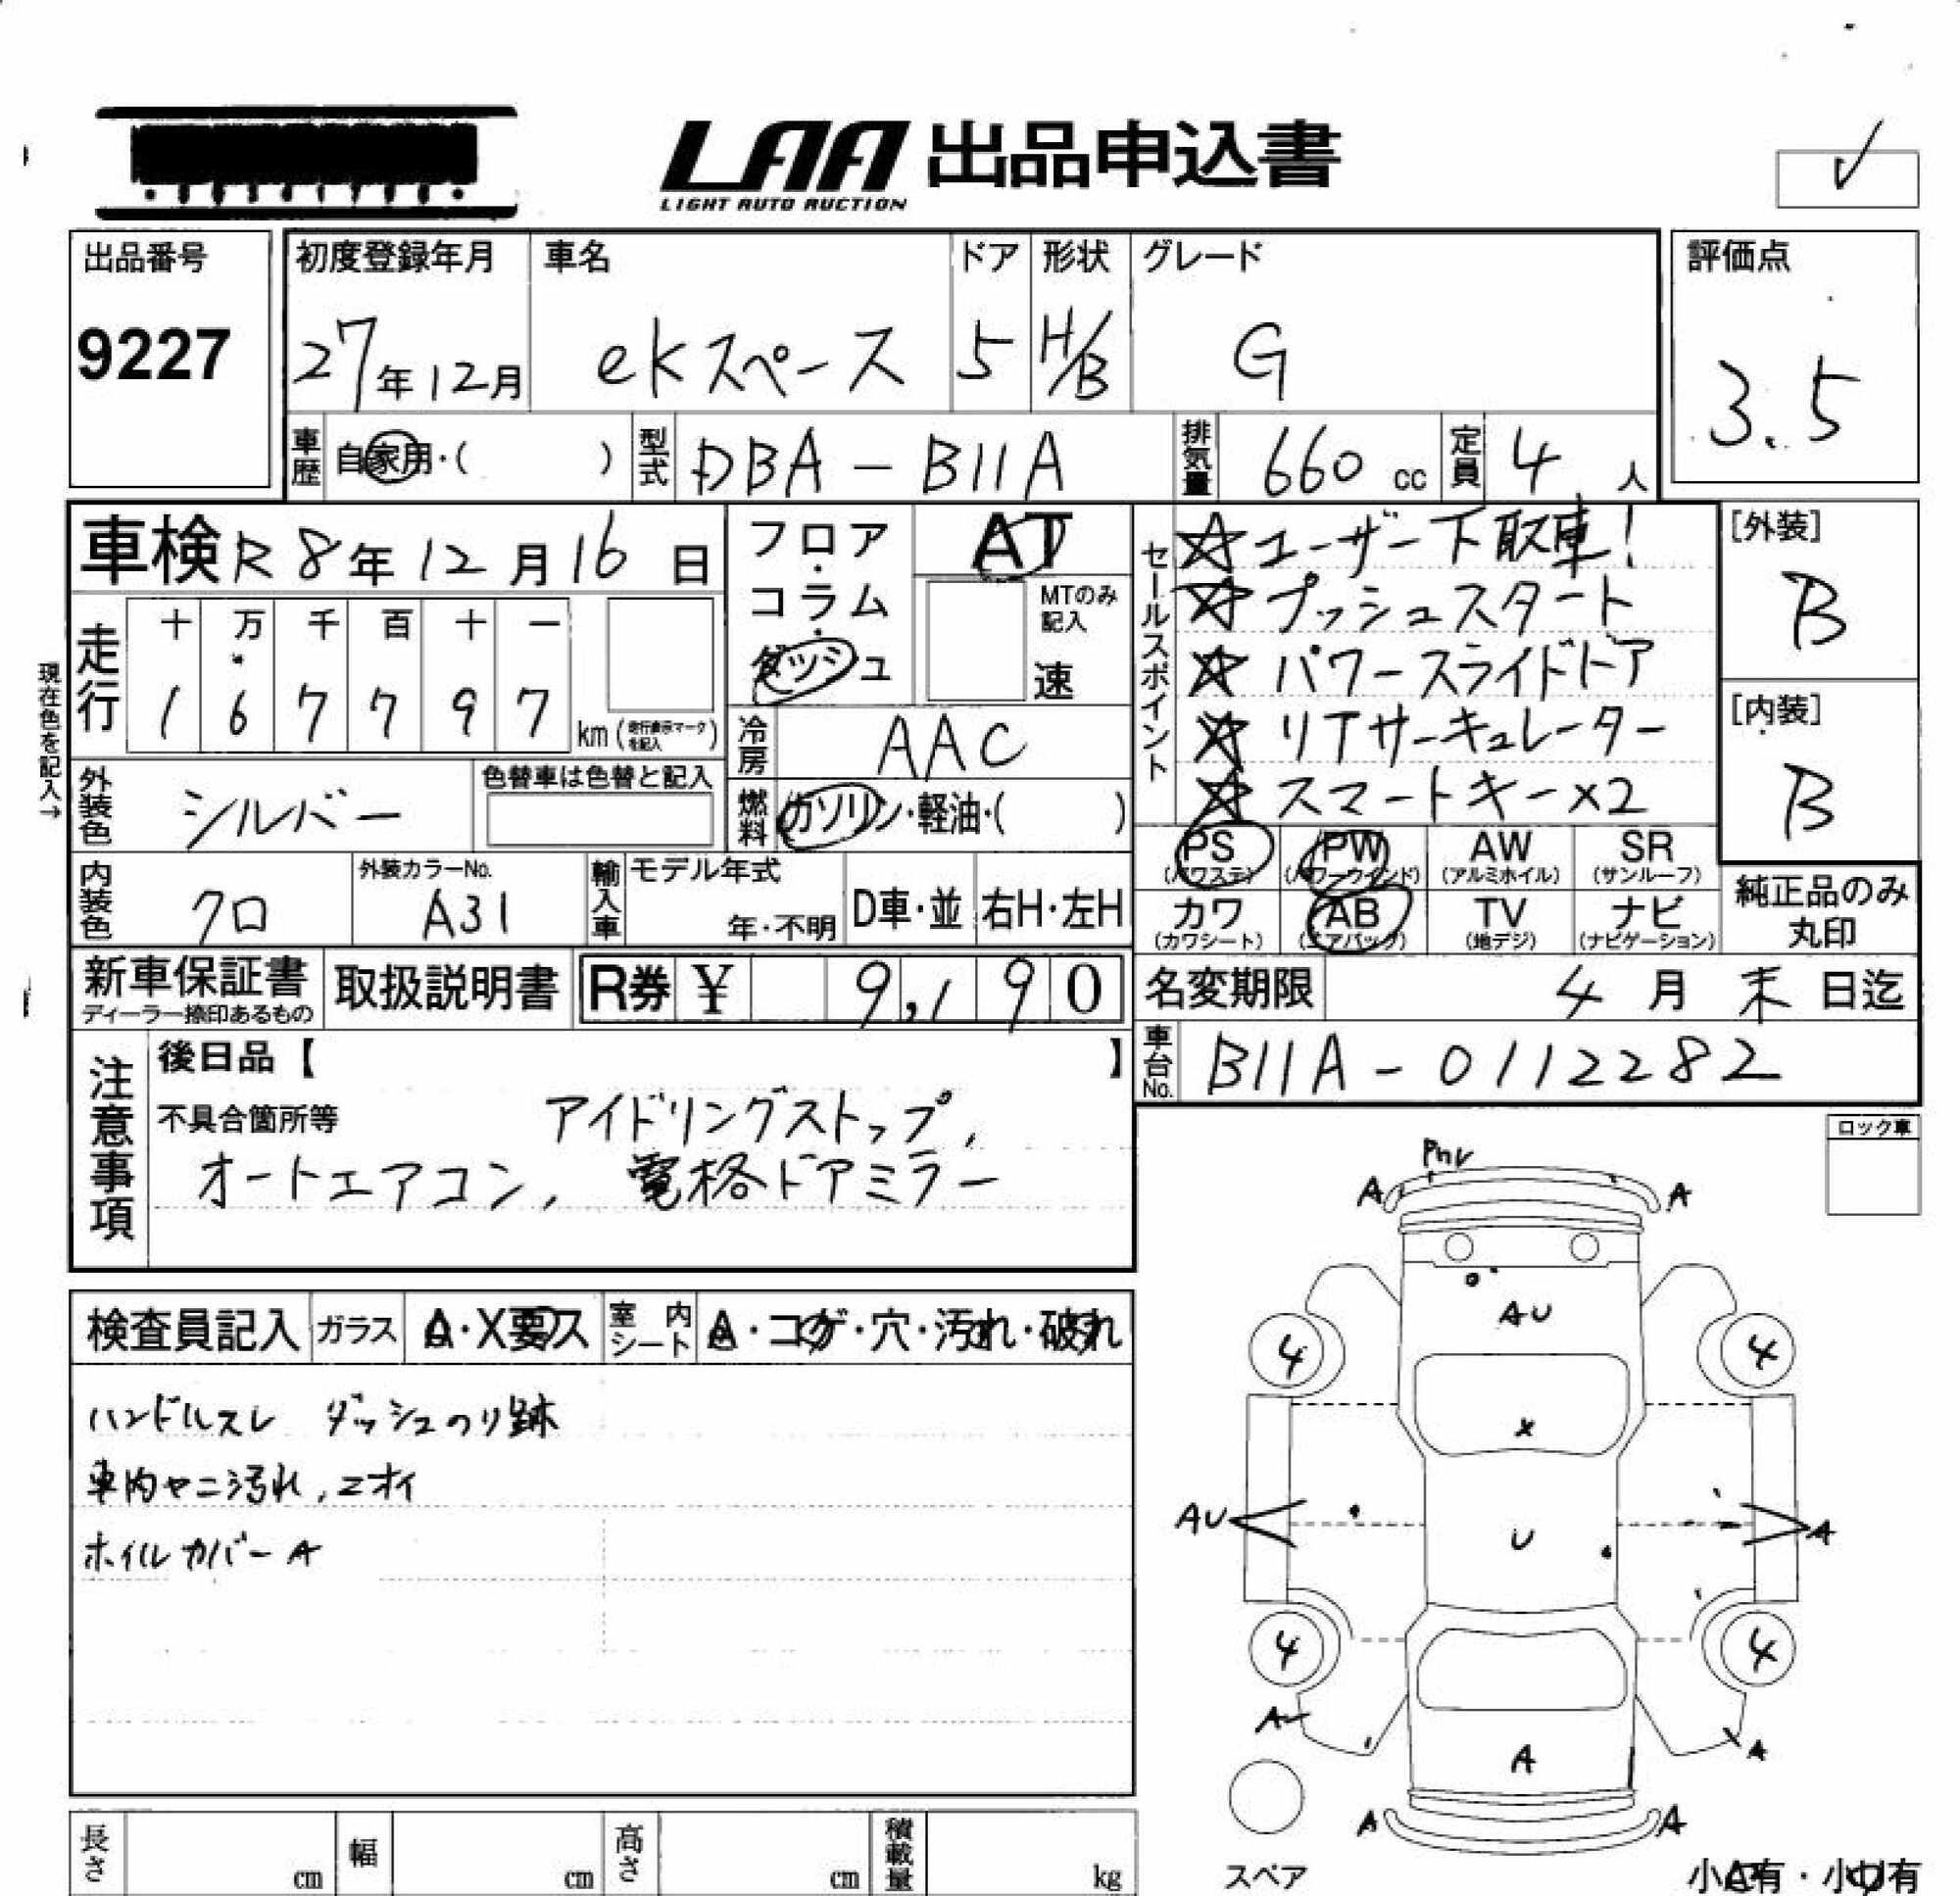 LAA 出品申込書
LIGHT AUTO AUCTION
出品番号
9227
初度登録年月
27年12月
車名
ekスペース
ドア
5
形状
H/B
グレード
G
評価点
3.5
車歴 自家用・( )
型式 DBA-B11A
排気量 660 cc
定員 4 人
車検 R8年12月16日
フロア・コラム・ダッシュ
AT
MTのみ記入
速
セールスポイント
☆ユーザー下取車!
☆プッシュスタート
☆パワースライドドア
☆リアサーキュレーター
☆スマートキー×2
[外装]
B
[内装]
B
現在色を記入→
走行
十 万 千 百 十 一
1 6 7 7 9 7 km(走行表示マークを記入)
冷房 AAC
外装色 シルバー
色替車は色替と記入
燃料 ガソリン・軽油・( )
PS (パワステ)
PW (パワーウインド)
AW (アルミホイル)
SR (サンルーフ)
カワ (カワシート)
AB (エアバック)
TV (地デジ)
ナビ (ナビゲーション)
純正品のみ丸印
内装色 クロ
外装カラーNo. A31
輸入車
モデル年式
年・不明
D車・並
右H・左H
新車保証書
ディーラー捺印あるもの
取扱説明書
R券 ¥ 9,190
名変期限 4月末日迄
車台No. B11A-0112282
注意事項
後日品【 】
不具合箇所等 アイドリングストップ,
オートエアコン, 電格ドアミラー
ロック車
検査員記入 ガラス A・X要ス 室内シート A・コゲ・穴・汚れ・破れ
ハンドルスレ ダッシュのり跡
車内ヤニ汚れ,ニオイ
ホイルカバーA
A A
AU
4 4
X
AU U A
4 4
A A
A
A A
スペア
小A有・小U有
長さ cm 幅 cm 高さ cm 積載量 kg